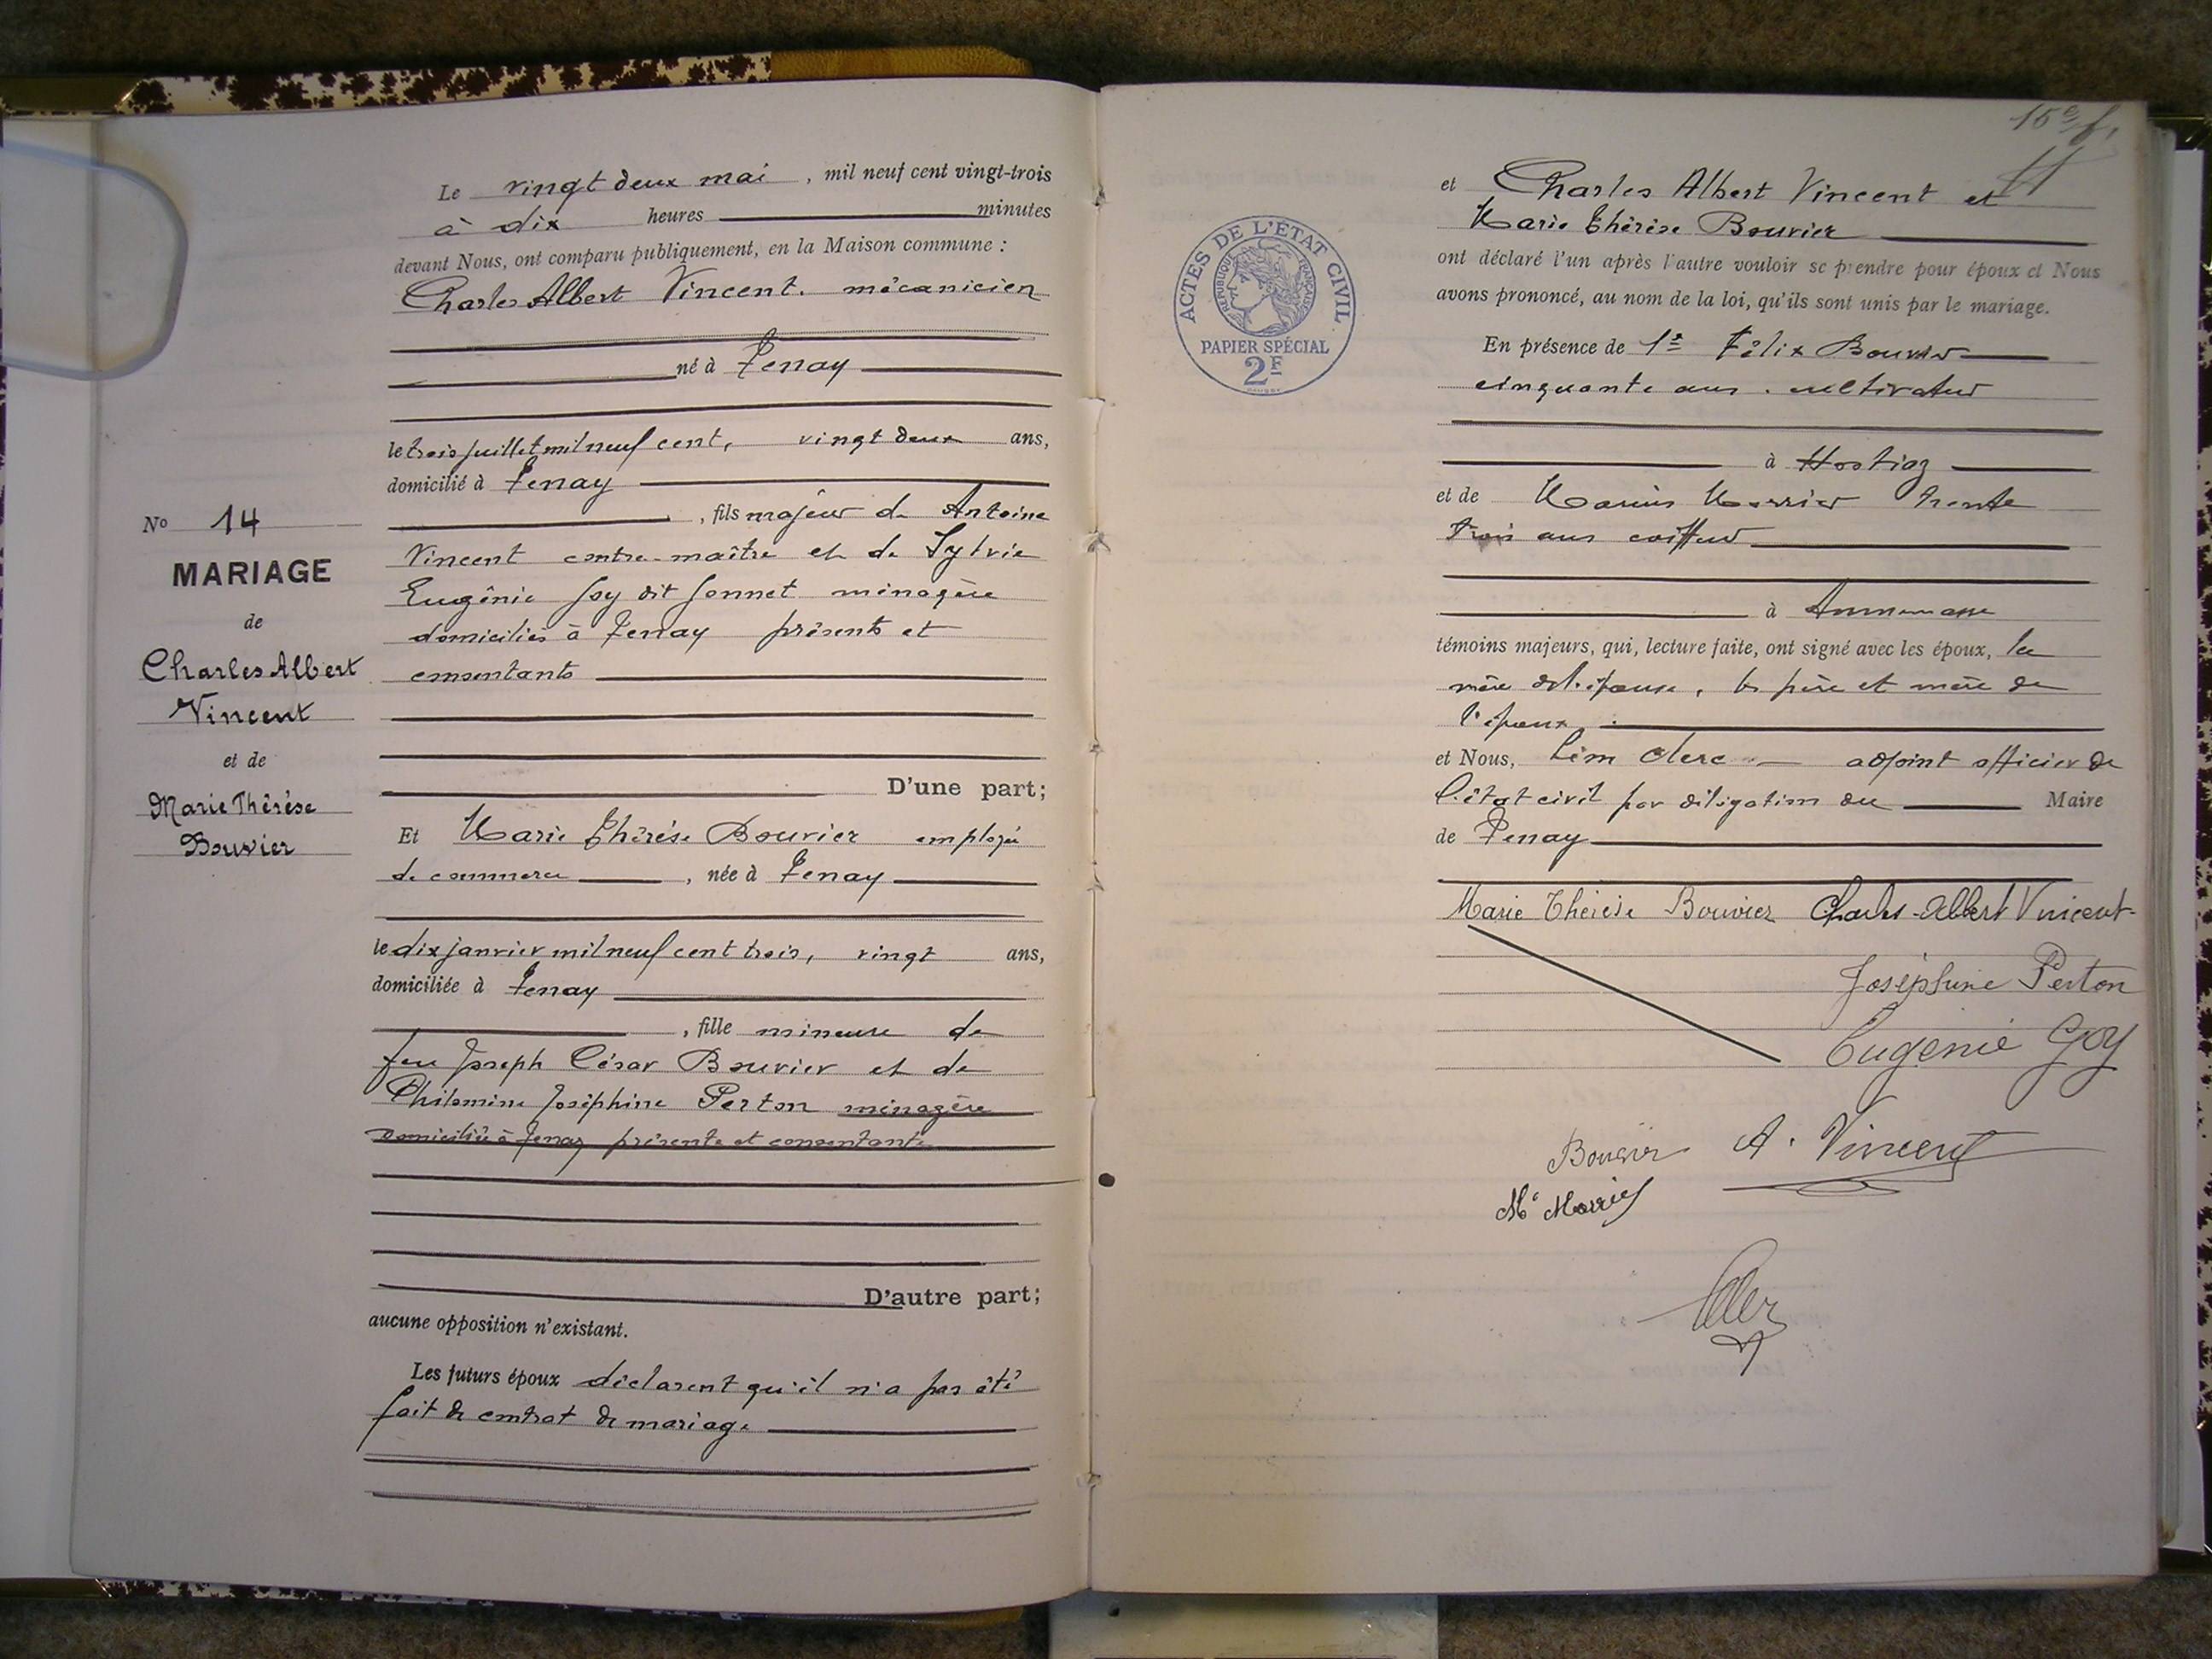 Le vingt deux mai, mil neuf cent vingt-trois
à dix heures minutes
devant Nous, ont comparu publiquement, en la Maison commune :
Charles Albert Vincent. mécanicien
né à Tenay
le trois juillet mil neuf cent, vingt deux ans,
domicilié à Tenay
, fils majeur de Antoine
Vincent contre-maître et de Sylvie
Eugénie Goy dit Jonnet ménagère
domiciliés à Tenay présents et
consentants
D'une part;
Et Marie Thérèse Bouvier employée
de commerce, née à Tenay
le dix janvier mil neuf cent trois, vingt ans,
domiciliée à Tenay
, fille mineure de
feu Joseph César Bouvier et de
Philomine Joséphine Perton ménagère
domiciliée à Tenay présente et consentante
D'autre part;
aucune opposition n'existant.
Les futurs époux déclarent qu'il n'a pas été
fait de contrat de mariage
No 14
MARIAGE
de
Charles Albert
Vincent
et de
Marie Thérèse
Bouvier
15e f.
ACTES DE L'ÉTAT CIVIL
RÉPUBLIQUE FRANÇAISE
PAPIER SPÉCIAL
2F
et Charles Albert Vincent et
Marie Thérèse Bouvier
ont déclaré l'un après l'autre vouloir se prendre pour époux et Nous
avons prononcé, au nom de la loi, qu'ils sont unis par le mariage.
En présence de 1º Félix Bouvier
cinquante ans. cultivateur
à Hostiaz
et de Marius Morrier trente
trois ans coiffeur
à Annemasse
témoins majeurs, qui, lecture faite, ont signé avec les époux, la
mère de l'épouse, les père et mère de
l'époux
et Nous, Léon Clerc adjoint officier de
l'état civil par délégation du Maire
de Tenay
Marie Thérèse Bouvier Charles-Albert Vincent
Joséphine Perton
Eugénie Goy
Bouvier A. Vincent